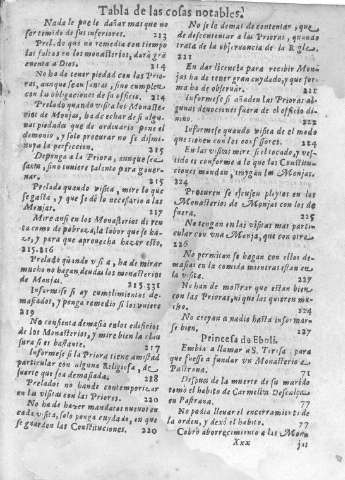 Tabla de las cosas notables.
Nada le puede dañar mas que no
ser temido de sus inferiores. 213
Prel. de que no remedia con tiempo
las faltas en los monasterios, dará gra
cuenta a Dios. 214
No ha de tener piedad con las Prio
ras, aunque sean santas, sino cumplen
con la obligaciones de su oficio. 214
Prelado quando visita los Monaste
rios de Monjas, ha de echar de si algu
nas piedades que de ordinario pone el
demonio, y solo procurar no se dismi-
nuya la perfeccion. 215
Deponga a la Priora, aunque sea
santa, sino tuviere talento para gouer
nar. 215
Prelado quando visita, mire lo que
se gasta, y que se dè lo necesario a las
Monjas. 217
Mire ansi en los Monasterios de ren
ta como de pobreza, la labor que se ha-
ze, y para que aproueche hazer esto,
215.216
Prelado quãndo visita, ha de mirar
mucho no hagan deudas los monasterios
de Monjas. 215.331
Informese si ay cumplimientos de-
masiados, y ponga remedio si los vuiere
219
No consienta demasia en los edificios
de los Monasterios, y mire bien la clau
sura si es bastante. 217
Informese si la Priora tiene amistad
particular con alguna Religiosa, de
suerte que sea demasiada. 218
Prelados no hande contemporizar
en la visita con las Priores. 220
No ha de hazer mandatos nueuos en
cada visita, solo ponga cuydado, en que
se guarden las Constituciones. 220
No se le dè mas de contentar, que
de descontentar a las Prioras, quando
trata de la obseruancia de la Regla
221
En dar licencia para recibir Mon-
jas ha de tener gran cuydado, y que for
ma ha de obseruar. 221
Informese si añaden las Prioras al-
gunas deuociones fuera de el oficio di-
uino. 222
Informese quando visita de el modo
que tienen con los confessores. 224
En las visitas mire si el tocado, y ves-
tido es conforme a lo que las Constitu-
ciones mandan, traygan las Monjas.
224
Procuren se escusen pleytos en los
Monasterios de Monjas con los de
fuera. 225
No tengan en las visitas mas parti-
cular con vna Monja, que con otra.
226
No permitan se hagan con ellos de
masias en la comida mientras estàn en la
visita. 227
No han de mostrar que estàn bien
con las Prioras, ni que las quieren mu-
cho. 227
No crean a nadie hasta informar-
se bien. 227
Princesa de Eboli.
Embia a llamar a S. Teresa para
que fuesse a fundar vn Monasterio a
Pastrana. 71
Despues de la muerte de su marido
tomò el habito de Carmelita Descalça
en Pastrana. 77
No podia lleuar el encerramiento de
la orden, y dexò el habito. 77
Cobrò aborrecimiento a las Mon-
Xxx
jas